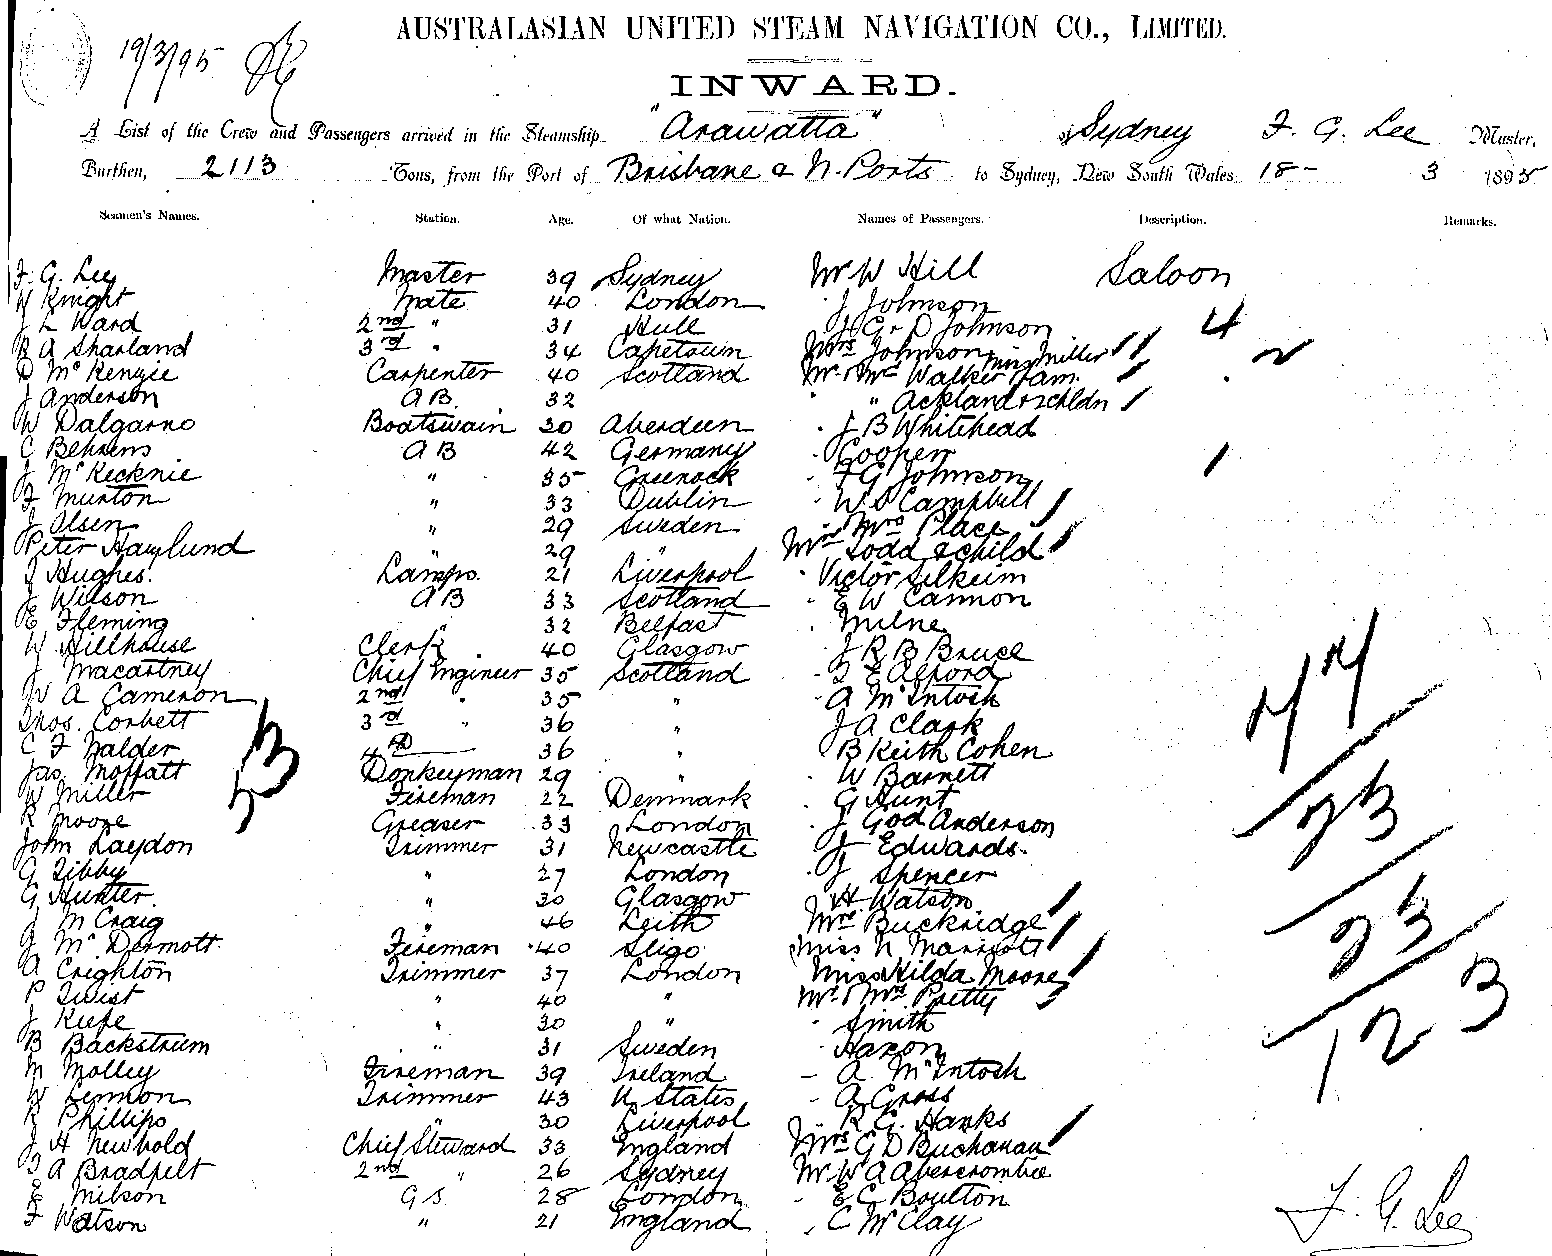 19/3/95
AUSTRALASIAN UNITED STEAM NAVIGATION CO., LIMITED.
INWARD.
A List of the Crew and Passengers arrived in the Steamship "Arawatta" of Sydney F. G. Lee Master,
Burthen, 2113 Tons, from the Port of Brisbane & N. Ports to Sydney, New South Wales 18- 3 1895
Seamen's Names. Station. Age. Of what Nation. Names of Passengers. Description. Remarks.
F. G. Lee Master 39 Sydney Mr W Hill Saloon
W Knight Mate 40 London J Johnson
J L Ward 2nd " 31 Hull J G & D Johnson 4
R A Sharland 3rd " 34 Capetown Mrs Johnson Miss Miller 2
D McKenzie Carpenter 40 Scotland Mr & Mrs Walker fam.
J Anderson AB 32 " Ackland & 2 chldn
W Dalgarno Boatswain 30 Aberdeen J B Whitehead
C Behrens AB 42 Germany Cooper
J McKecknie " 35 Greenock F G Johnson 1
F Murton " 33 Dublin W S Campbell
J Olsen " 29 Sweden Mrs Place
Peter Haylund " 29 " Mrs Todd & child
J Hughes. Lamps. 21 Liverpool Victor Silkeim
J Wilson AB 33 Scotland E W Cannon
E Fleming 32 Belfast Milne
W Hillhouse Clerk 40 Glasgow J R B Bruce
J Macartney Chief Engineer 35 Scotland E Alford
W A Cameron 2nd " 35 " A McIntosh
Thos. Corbett 3rd " 36 " J A Clark
C F Nalder 4th 36 " B Keith Cohen
Jas Moffatt Donkeyman 29 " W Barnett
W Miller Fireman 22 Denmark G Hunt
R Moore Greaser 33 London J God Anderson
John Laydon Trimmer 31 Newcastle J Edwards
G Tibby " 27 London J Spencer
G Hunter " 30 Glasgow H Watson
J McCraig " 46 Leith Mrs Buckridge
J McDermott Fireman 40 Sligo Miss N Marriott
A Crighton Trimmer 37 London Miss Hilda Moore
P Twist " 40 " Mr & Mrs Pretty
J Keefe " 30 " Smith
B Backstrum " 31 Sweden Haxon
M Molley Fireman 39 Ireland A McIntosh
W Lennon Trimmer 43 U States A Gross
R Phillips " 30 Liverpool R. G. Hanks
J H Newbold Chief Steward 33 England Mrs G D Buchanan
A Bradpelt 2nd " 26 Sydney Mr W A Abercrombie
E Milson G.S. 28 London E C Boulton
F Watson " 21 England C McClay
53
77
23
23
123
F. G. Lee